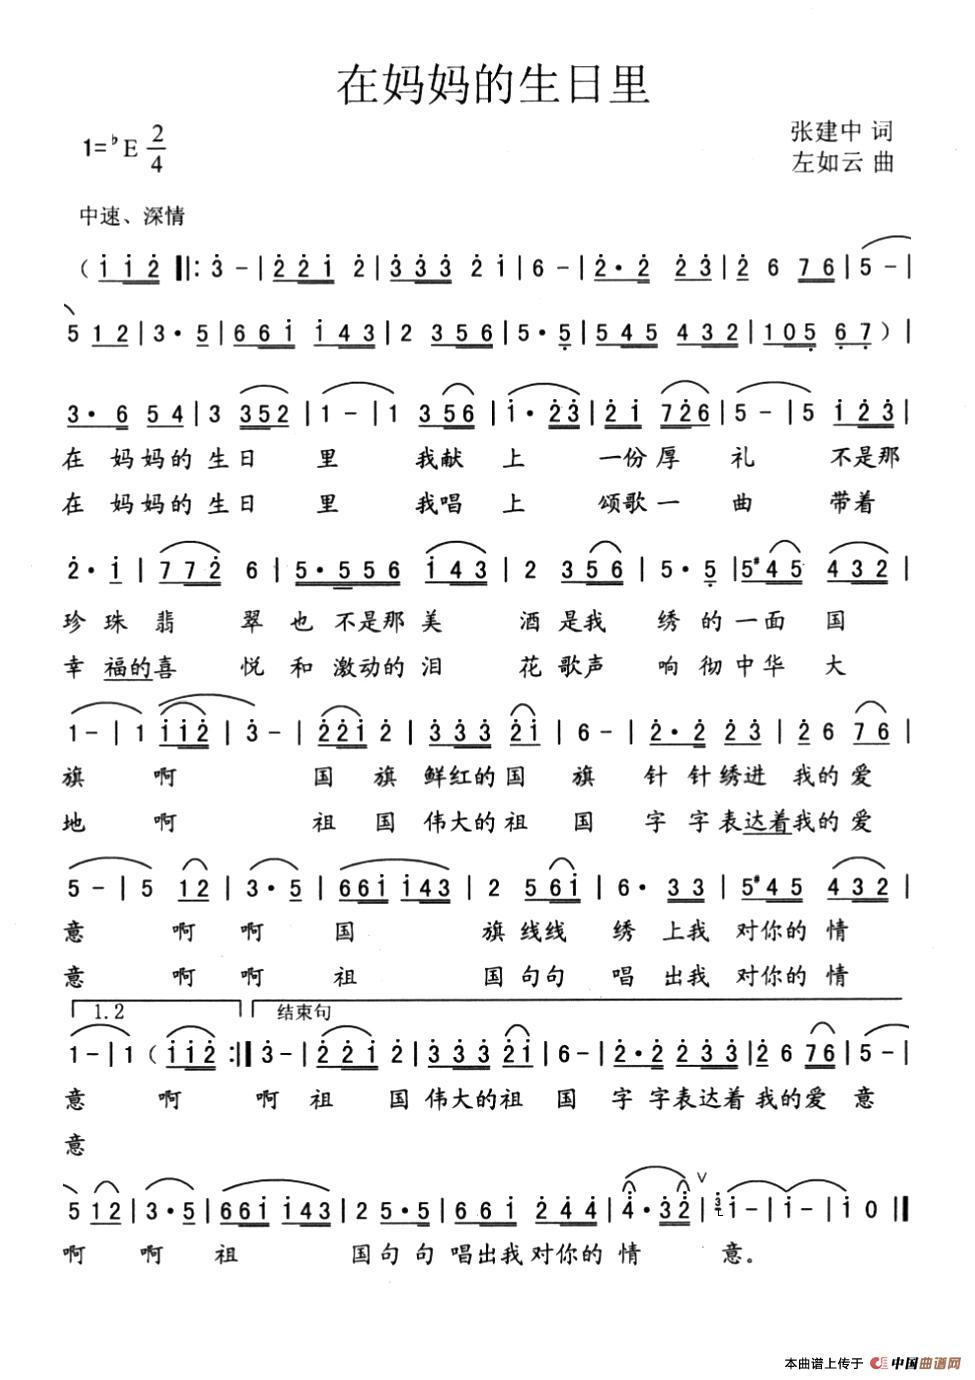 在妈妈的生日里
1=♭E 2/4
张建中 词
左如云 曲
中速、深情
（i i 2 ‖: 3 - | 2 2 i 2 | 3 3 3 2 i | 6 - | 2 · 2 2 3 | 2 6 7 6 | 5 - |
5 1 2 | 3 · 5 | 6 6 i i 4 3 | 2 3 5 6 | 5 · 5 | 5 4 5 4 3 2 | 1 0 5 6 7 ）|
3 · 6 5 4 | 3 3 5 2 | 1 - | 1 3 5 6 | i · 2 3 | 2 i 7 2 6 | 5 - | 5 i 2 3 |
在 妈 妈 的 生 日 里 我 献 上 一 份 厚 礼 不 是 那
在 妈 妈 的 生 日 里 我 唱 上 颂 歌 一 曲 带 着
2 · i | 7 7 2 6 | 5 · 5 5 6 i 4 3 | 2 3 5 6 | 5 · 5 | 5 #4 5 4 3 2 |
珍 珠 翡 翠 也 不 是 那 美 酒 是 我 绣 的 一 面 国
幸 福 的 喜 悦 和 激 动 的 泪 花 歌 声 响 彻 中 华 大
1 - | 1 i i 2 | 3 - | 2 2 i 2 | 3 3 3 2 i | 6 - | 2 · 2 2 3 | 2 6 7 6 |
旗 啊 国 旗 鲜 红 的 国 旗 针 针 绣 进 我 的 爱
地 啊 祖 国 伟 大 的 祖 国 字 字 表 达 着 我 的 爱
5 - | 5 1 2 | 3 · 5 | 6 6 i i 4 3 | 2 5 6 i | 6 · 3 3 | 5 #4 5 4 3 2 |
意 啊 啊 国 旗 线 线 绣 上 我 对 你 的 情
意 啊 啊 祖 国 句 句 唱 出 我 对 你 的 情
1.2 结束句
1 - | 1 （i i 2 :‖ 3 - | 2 2 i 2 | 3 3 3 2 i | 6 - | 2 · 2 2 3 3 | 2 6 7 6 | 5 - |
意 啊 啊 祖 国 伟 大 的 祖 国 字 字 表 达 着 我 的 爱 意
意
5 1 2 | 3 · 5 | 6 6 i i 4 3 | 2 5 5 · 5 | 6 6 i 2 4 4 | 4 · 3 2 | 3 i - | i - | i 0 ‖
啊 啊 祖 国 句 句 唱 出 我 对 你 的 情 意。
本曲谱上传于 中国曲谱网